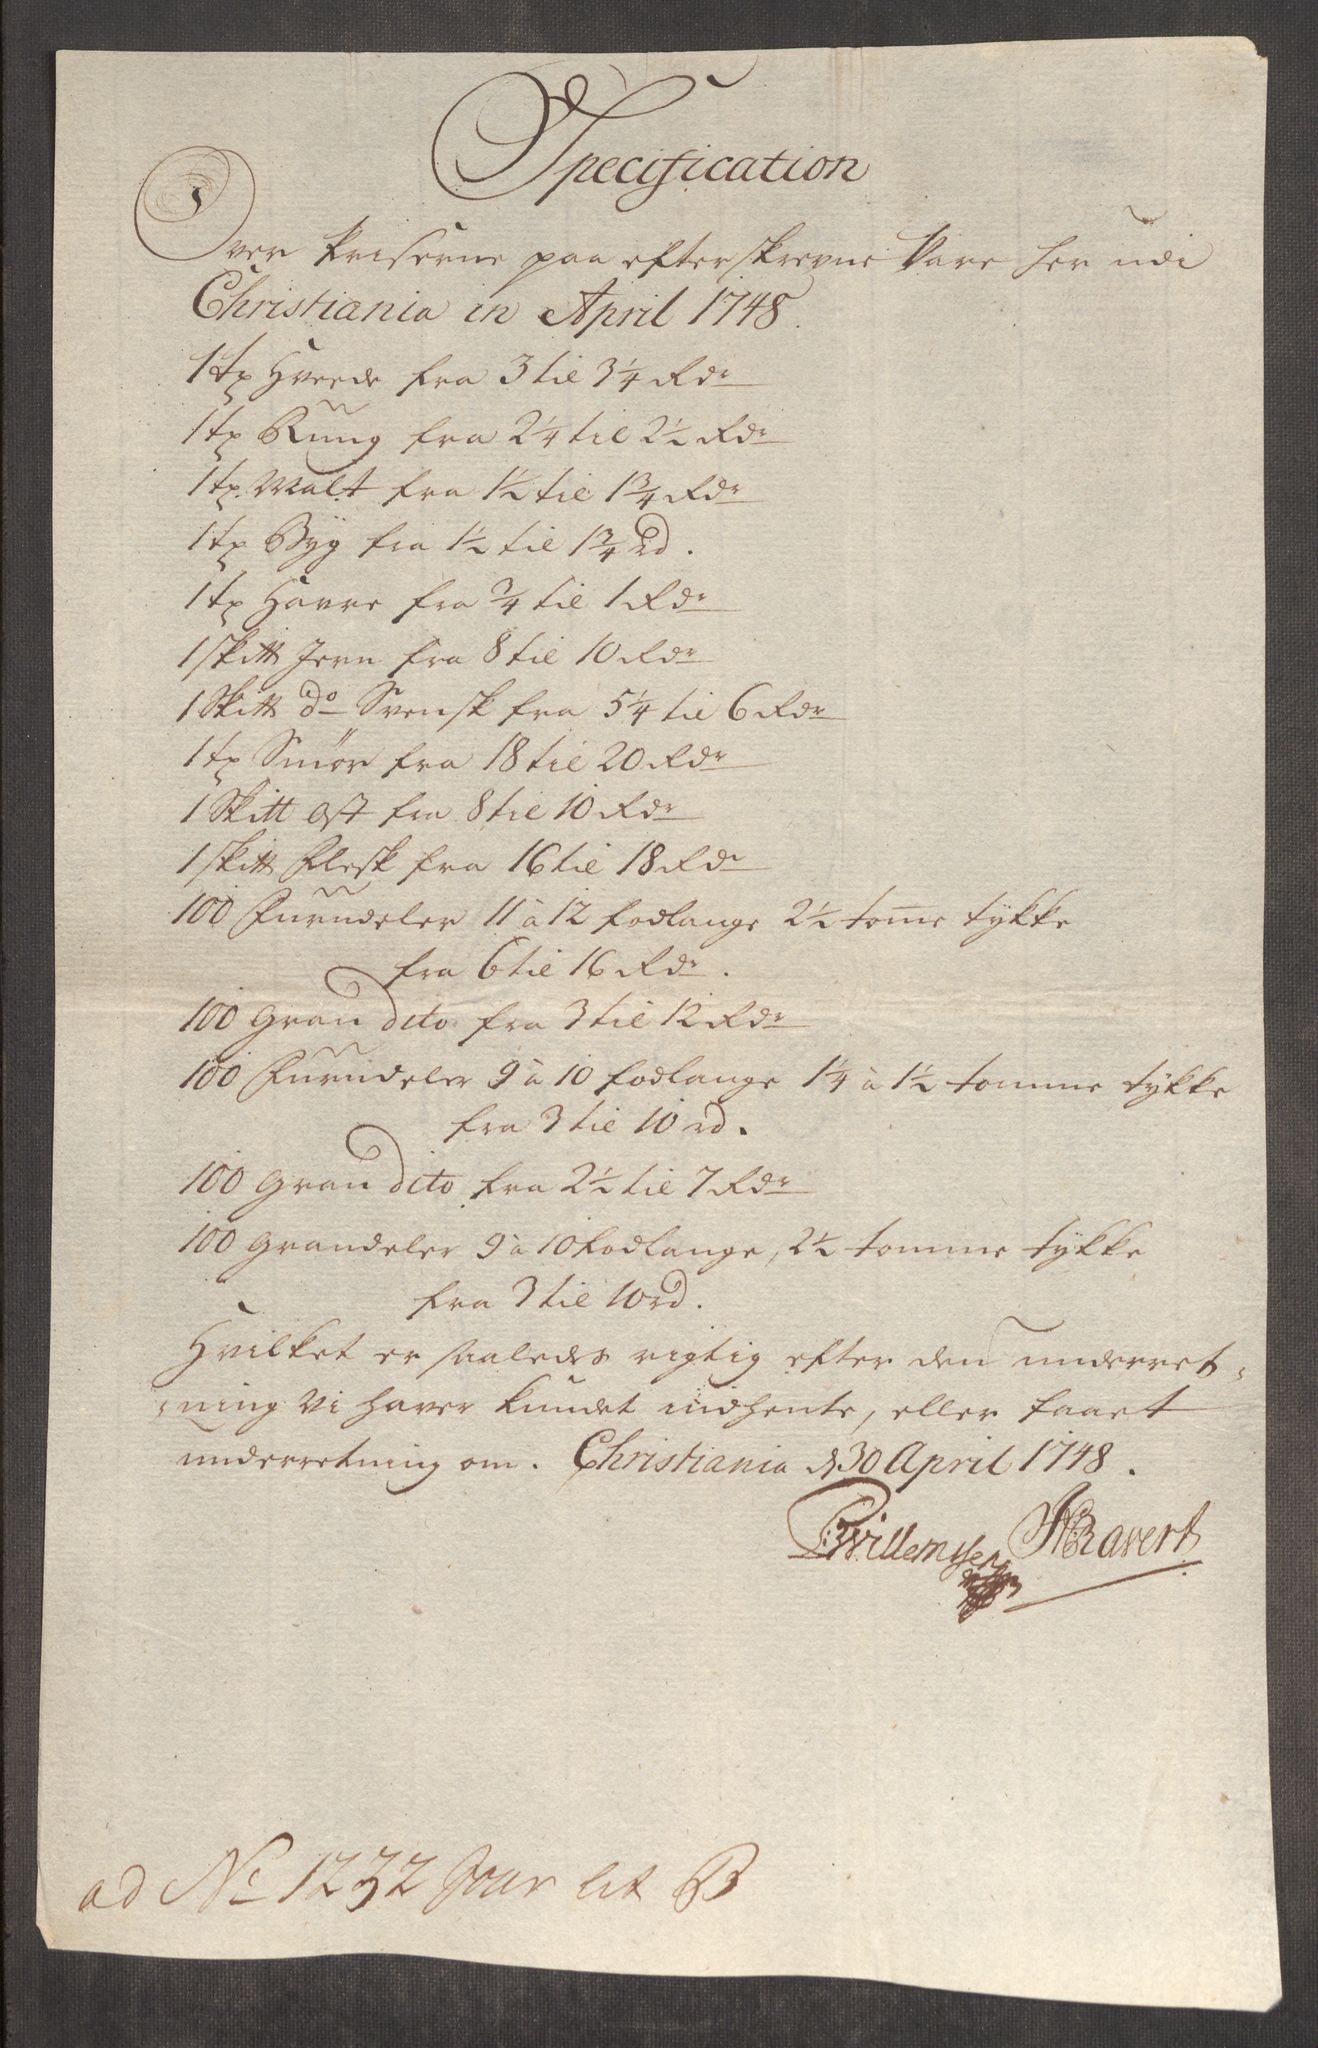 Specification
Over Priserne paa efterskrevne Vare her udi
Christiania in April 1748.
1 tø Hveede fra 3 til 3¼ Rdr
1 tø Rüug fra 2¼ til 2½ Rdr
1 tø Malt fra 1½ til 1¾ Rdr
1 tø Byg fra 1½ til 1¾ rd.
1 tø Havre fra ¾ til 1 Rdr
1 skitt Jern fra 8 til 10 Rdr
1 Skitt do Svensk fra 5¼ til 6 Rdr
1 tø Smör fra 18 til 20 Rdr
1 Skitt Ost fra 8 til 10 Rdr
1 skitt Flesk fra 16 til 18 Rdr
100 Furudeler 11 à 12 fodlange 2½ tome tykke
fra 6 til 16 Rdr.
100 Gran dito fra 3 til 12 Rdr
100 Furudeler 9 à 10 fodlange 1¼ à 1½ tomme tykke
fra 3 til 10 rd.
100 Gran dito fra 2½ til 7 Rdr
100 Grandeler 9 à 10 fodlange, 2½ tomme tykke
fra 3 til 10 rd.
Hvilket er saaledes rigtig efter den underret-
ning vi haver kundet indhente, eller faaet
underretning om. Christiania d 30 April 1748.
Willemsen Ravert
ad No 1232 Jour lit B